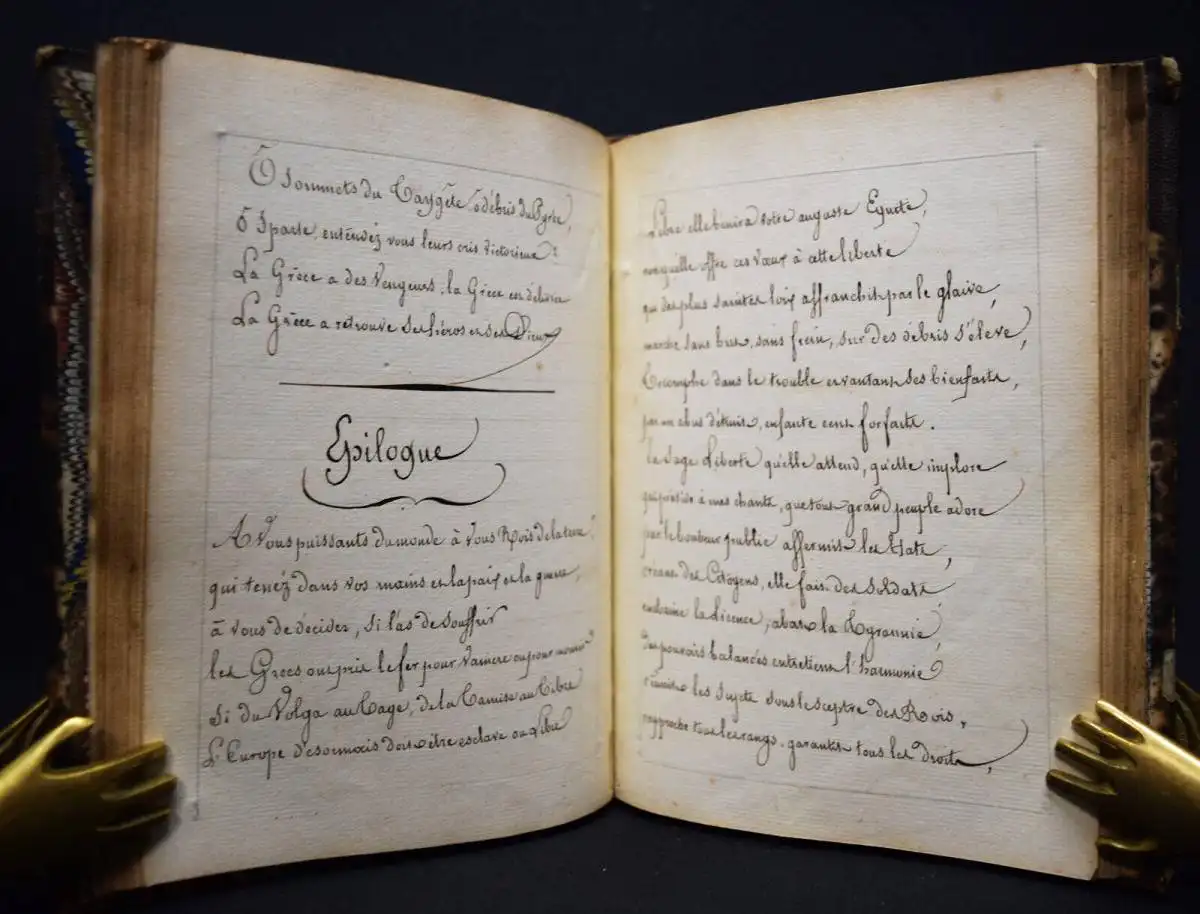 Ô Sommets du Taygête, ô débris du Pyrée,
Ô Sparte, entendez vous leurs cris victorieux?
La Grèce a des Vengeurs, la Grèce est délivrée
La Grèce a retrouvé ses héros et ses Dieux
Epilogue
A Vous puissants du monde à Vous Rois de la terre,
qui tenéz dans vos mains et la paix et la guerre,
à vous de décider, si las de souffrir
les Grecs ont pris le fer pour vaincre ou pour mourir
Si du Volga au Tage, de la Tamise au Tibre
L'Europe désormais doit être esclave ou Libre
Libre elle benira votre auguste Equité,
non qu'elle offre ces vœux à cette liberté
qui des plus saintes loix affranchit par le glaive,
marche sans but, sans frein, sur des débris s'élève,
Triomphe dans le trouble et vantant ses bienfaits,
par un abus détruit, enfante cent forfaits.
la sage Liberté qu'elle attend, qu'elle implore
qui préside à mes chants, que tout grand peuple adore
par le bonheur public affermit les Etats,
créant des Citoyens, elle fait des soldats,
enchaine la licence, abat la Tyrannie,
des pouvoirs balancés entretient l'harmonie
réunit les sujets sous le sceptre des Rois,
rapproche tous les rangs, garantit tous les droits,